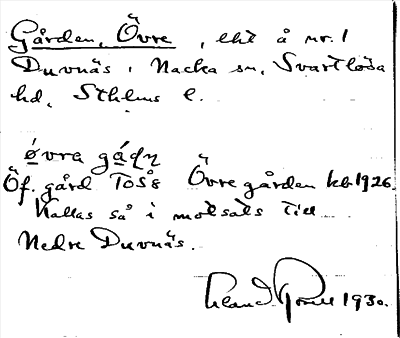 Gården, Övre, lht å nr. 1
Duvnäs i Nacka sn, Svartlösa
hd, Sthlms l.
övra gáḍṇ
Öf. gård To 5^8 Övre gården kb. 1926.
Kallas så i motsats till
Nedre Duvnäs.
1930.